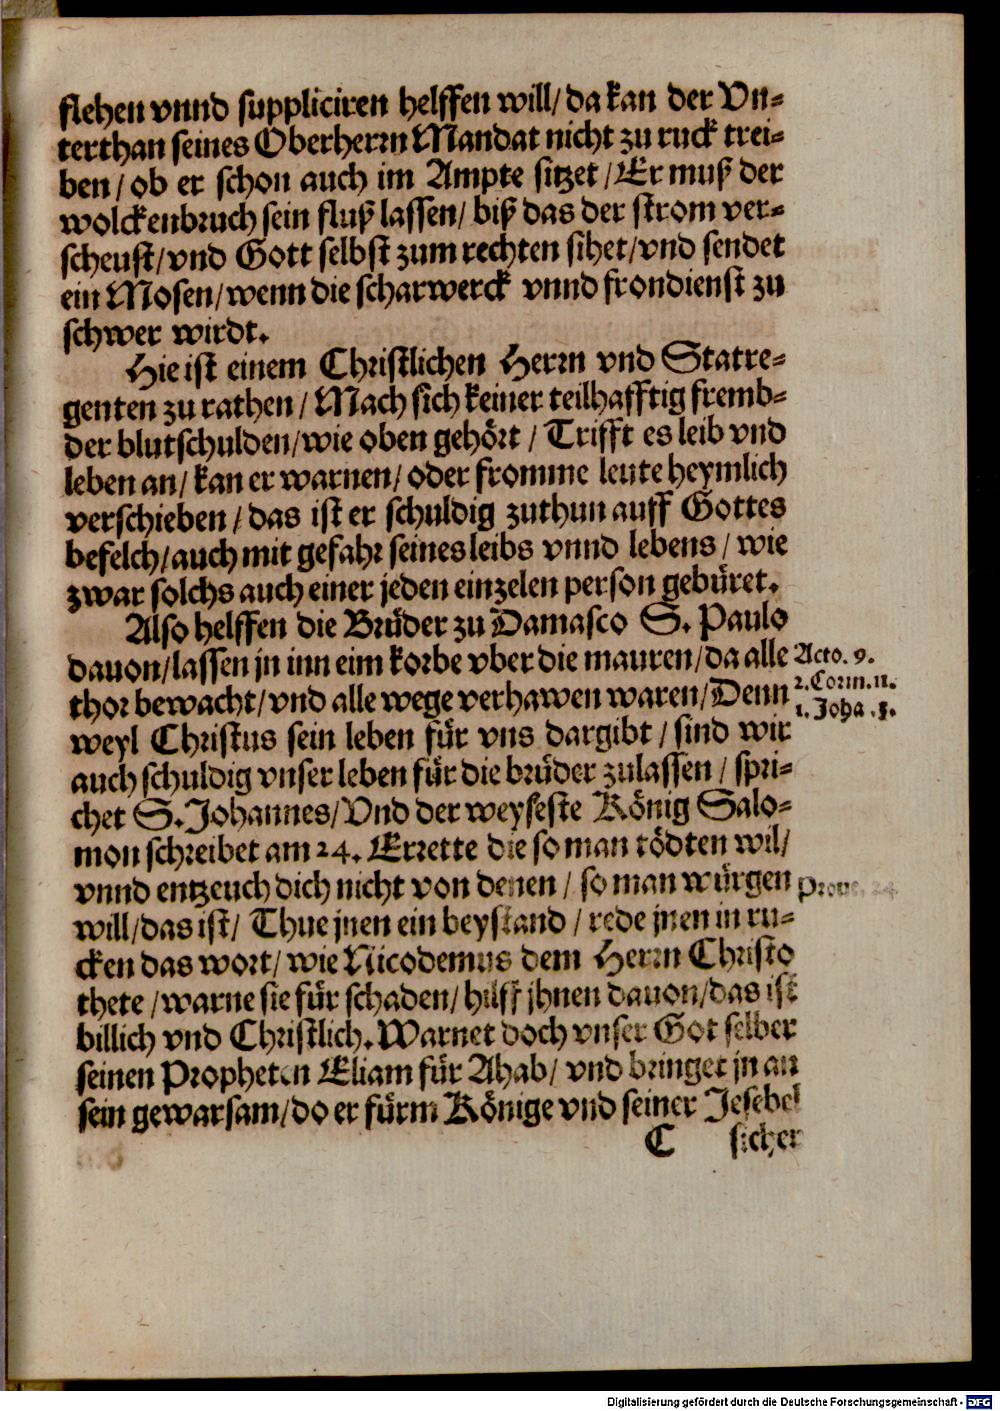 flehen vnnd suppliciren helffen will/ da kan der Vn⸗
terthan seines Oberherrn Mandat nicht zu ruck trei⸗
ben / ob er schon auch im Ampte sitzet / Er muß der
wolckenbruch sein fluß lassen/ biß das der strom ver⸗
scheust/ vnd Gott selbst zum rechten sihet/ vnd sendet
ein Mosen/ wenn die scharwerck vnnd frondienst zu
schwer wirdt.
Hie ist einem Christlichen Herrn vnd Statre⸗
genten zu rathen / Mach sich keiner teilhafftig fremb⸗
der blutschulden/ wie oben gehört / Trifft es leib vnd
leben an/ kan er warnen/ oder fromme leute heymlich
verschieben / das ist er schuldig zuthun auff Gottes
befelch/ auch mit gefahr seines leibs vnnd lebens / wie
zwar solchs auch einer jeden einzelen person gebüret.
Also helffen die Brüder zu Damasco S. Paulo
dauon/ lassen jn inn eim korbe vber die mauren/ da alle
thor bewacht/ vnd alle wege verhawen waren/ Denn
weyl Christus sein leben für vns dargibt / sind wir
auch schuldig vnser leben für die brüder zulassen / spri⸗
chet S. Johannes/ Vnd der weyseste König Salo⸗
mon schreibet am 24. Errette die so man tödten wil/
vnnd entzeuch dich nicht von denen / so man würgen
will/ das ist/ Thue jnen ein beystand / rede jnen in ru⸗
cken das wort/ wie Nicodemus dem Herrn Christo
thete / warne sie für schaden/ hilff jhnen dauon/ das ist
billich vnd Christlich. Warnet doch vnser Got selber
seinen Propheten Eliam für Ahab/ vnd bringet jn an
sein gewarsam/ do er fürm Könige vnd seiner Jesebel
C sicher
Acto. 9.
2. Corin. 11.
1. Joha. 3.
Prove. 24
Digitalisierung gefördert durch die Deutsche Forschungsgemeinschaft - DFG